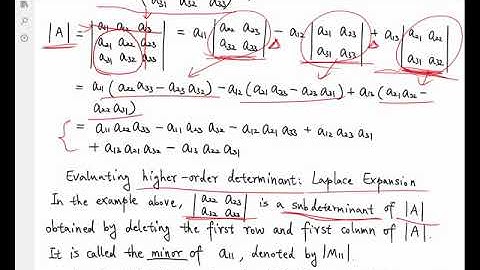 ( a31 a32 a33 )
|A| = | a11 a12 a13 a21 a22 a23 a31 a32 a33 | = a11 | a22 a23 a32 a33 | - a12 | a21 a23 a31 a33 | + a13 | a21 a22 a31 a32 |
= a11 (a22 a33 - a23 a32) - a12 (a21 a33 - a23 a31) + a13 (a21 a32 -
a22 a31)
= a11 a22 a33 - a11 a23 a32 - a12 a21 a33 + a12 a23 a31
+ a13 a21 a32 - a13 a22 a31
Evaluating higher-order determinant: Laplace Expansion
In the example above, | a22 a23 a32 a33 | is a subdeterminant of |A|
obtained by deleting the first row and first column of |A|.
It is called the minor of a11, denoted by |M11|.